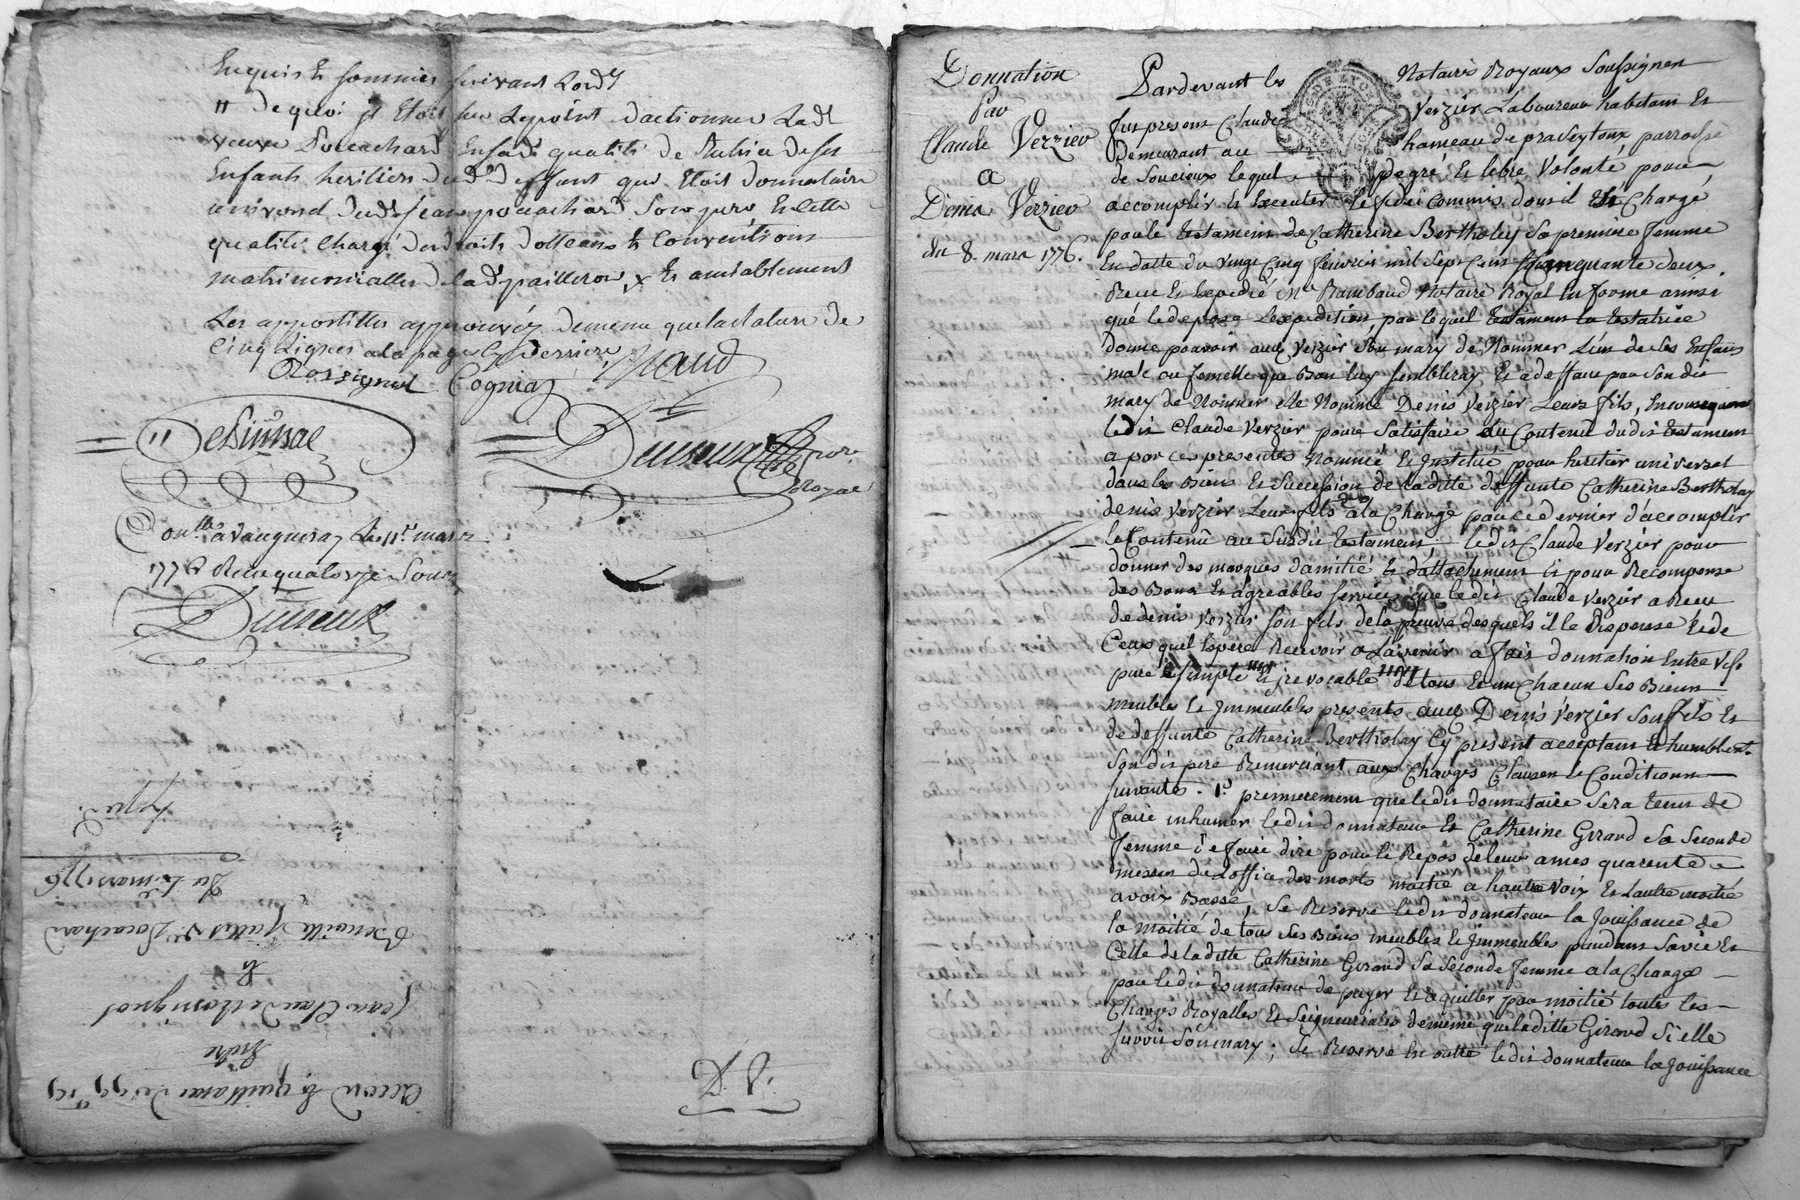 Enquis et sommés suivant l'ord.
de quoi et étoit sur le point d'actionner lad.
veuve Pouachard en sad. qualité de tutrice de ses
enfants héritiers dud. deffunt qui étoit donnataire
universel dud. Jean pouachard son père en cette
qualité chargé des droits dotteaux et conventions
matrimonialles de lad. pailleron, et amiablement
Les appostilles approuvéz de meme que la rature de
Cinq Lignes a la page derriere
Rossignol Cognaz
Desiussac
Dutreux
no.re Royal
Con.llé a Vaugneray le 11.e mars
1776 Reçu quatorze sous
Dutreux
Du 8 mars 1776
Benoitte v.e Pouachard
et
Jean Claude Rossignol
Entre
Accord et quittance de 99 lt 19
Donnation
Par
Claude Verzier
a
Denis Verzier
du 8. mars 1776.
Pardevant les Notaires Royaux Soussignez
fut present Claude Verzier Laboureur habitant et
demeurant au hameau de pravertoux parroisse
de Soucieux lequel de gré et libre Volonté pour
accomplir et executer le fidei commis dont il est Chargé
par le testament de Catherine Bertholey sa premiere femme
En datte du vingt cinq fevrier mil sept cent cinquante deux
Recu et expedié M.e Rambaud Notaire Royal en forme ainsi
que le depose L'expedition, par lequel testament la testatrice
donne pouvoir aud. Verzier son mary de Nommer L'un de ses Enfans
male ou femelle que bon luy semblera, et a deffaut par son dit
mary de Nommer elle Nomme Denis Verzier Leurs fils, en consequence
ledit Claude Verzier pour Satisfaire au Contenu dudit testament
a par ces presentes Nommé et institué pour heritier universel
dans les Biens et Succession de laditte deffunte Catherine Bertholay
denis Verzier Leur fils a la Charge par ce dernier d'accomplir
le Contenu au Susdit testament ledit Claude Verzier pour
donner des marques d'amitié et d'attachement et pour Recompense
des Bons et agreables services que ledit Claude Verzier a recu
de denis Verzier son fils de la preuve desquels il le dispense et de
Ceux quil Espere Recevoir a L'avenir a fait donnation Entre vifs
pure et simple et jrevocable de tous et un Chacun Ses Biens
meubles et Jmmeubles presents aud. Denis Verzier Son fils et
de deffunte Catherine Bertholay Cy present acceptant et humblem.t
Son dit pere Remerciant aux Charges Clauses et Conditions
suivantes. 1.o premierement que ledit donnataire Sera tenu de
faire inhumer ledit donnateur et Catherine Girard Sa Seconde
femme et faire dire pour le Repos de leurs ames quarente
messes de L'office des morts moitié a haute Voix et L'autre moitié
a voix Basse, Se Reserve ledit donnateur la Jouissance de
la moitié de tous Ses Biens meubles et Jmmeubles pendant Sa vie et
Celle de laditte Catherine Girard Sa Seconde femme a la Charge
par ledit donnateur de payer et aquitter par moitié toutes les
Charges Royalles et Seigneuriales de meme que laditte Girard Si elle
survit Son mary; Se Reserve En outre ledit donnateur la Jouissance